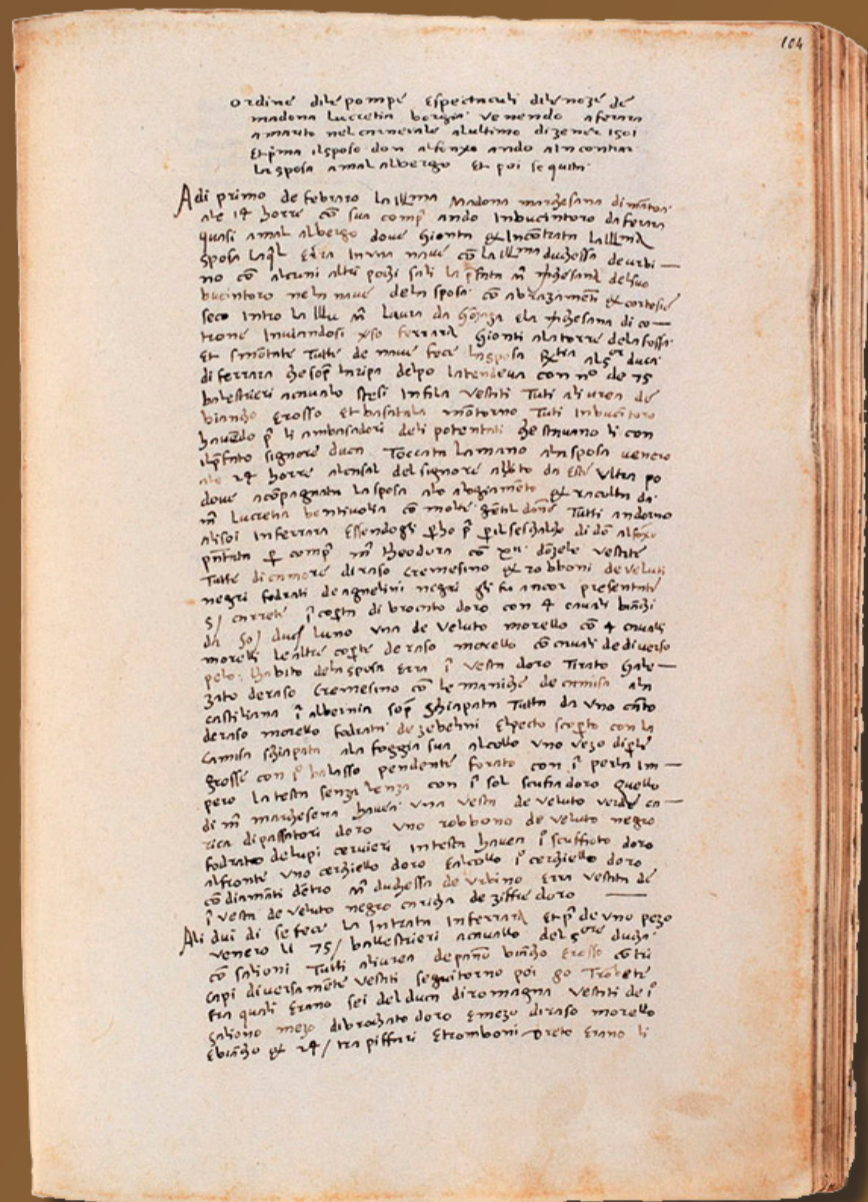 104
ordine dile pompe espectaculi dile noze de
madona lucretia borgia venendo a ferara
a marito nel carnevale alultimo di zener 1501
Et p̄ma il sposo don alfonxo ando aIncontrar
la sposa a mal albergo Et poi sequita
Adi primo de febraro la Ill̄ma Madona marchesana di mātoa
ale 14 horre cō sua comp̄ ando Inbucintoro da ferara
quasi a mal albergo dove gionta & Incōtrata la Ill̄ma
sposa laq̄l Erra In una nave cō la Ill̄ma duchessa de urbi
no cō alcuni altri pochi sali la p̄fata m̄ del suo
bucintoro nela nave dela sposa cō abrazamenti & cortesie
seco Intro la Illu m̄ laura da gōzaga Ela di co
trone Inviandosi v̄so ferrara gionti ala torre dela fossa
Et smōtate Tutte de nave fece la sposa al s̄or duca
di ferrara che sop̄ la ripa del po latendeva con n̄o de 75
balestrieri acavalo stesi In fila vestiti Tuti a livrea de
biancho Erosso Et basatala mōtorno Tuti Inbucītoro
havēdo p̄ li ambasadori deli potentati che stavano li con
il p̄fato signore duca Toccata la mano ala sposa venero
ale 24 horre al casal del signore alb̄to da Este Ultra po
dove acōpagnata la sposa alo alogiamēto & racolta da
m̄ lucretia bentivolia cō molte gētil dōne Tutti andorno
alisoi In ferrara Essendogli p̄ho p̄ p̄ il sescalcho di dō alfōxo
p̄ntata p̄ comp̄ m̄ theodora cō xii dōzele vestite
Tutte di camore di raso Cremesino & robboni de veluti
negri fodrati de agnelini negri gli fu ancor presentate
5/ carrete ī cop̄ta di brocato doro con 4 cavali biāchi
da 50/ duc/ luno una de veluto morello cō 4 cavali
morelli le altre cop̄te de raso morello cō cavali de diverso
pelo: lhabito dela sposa erra ī vesta doro Tirato
de raso Cremesino cō le maniche de camisa ala
castiliana ī albernia sop̄ schiapata Tutta da uno cāto
de raso morello fodrata de zebelini El pecto scop̄to con la
camisa schiapata ala foggia sua al collo uno vezo di p̄le
grosse con ī balasso pendente forato con ī perla Im
pero la testa senza lenza con ī sol scufia doro Quello
di m̄ marchesena haveva una vesta de veluto verde ca
rica di passatori doro uno robbono de veluto negro
fodrato de lupi cervieri In testa havea ī scuffioto doro
al fronte uno cerchiello doro Ealcollo ī cerchiello doro
cō diamanti dētro m̄ duchessa de urbino Erra vestita de
ī vesta de veluto negro caricha de ziffre doro
Ali dui di se fece la Intrata In ferrara Et p̄ de uno pezo
venero li 75/ ballestrieri acavallo del s̄ore ducha
cō salioni Tutti alivrea de panū biācho Erosso cō tri
capi diversamēte vestiti seguitorno poi 80 Trōbete
fra quali Erano sei del duca di romagna vestiti de ī
saliono mezo di brochato doro Emezo di raso morello
Ebiācho & 24/ tra piffari Etromboni dreto Erano li